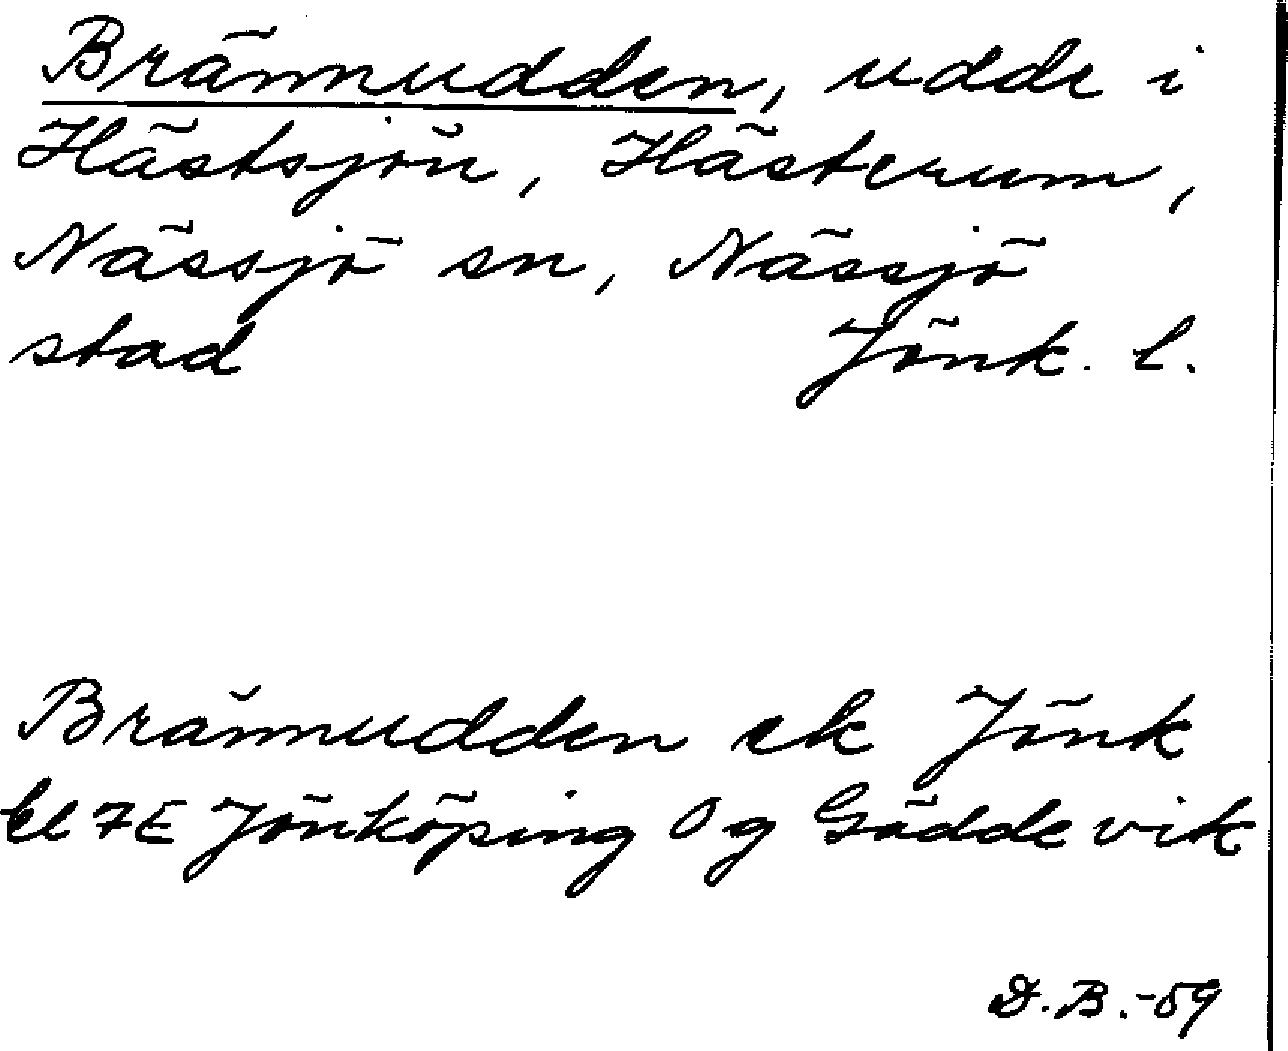 Brännudden, udde i
Hästsjön, Hästerum,
Nässjö sn, Nässjö
stad Jönk. l.
Brännudden ek Jönk
bl 7E Jönköping Og Gäddevik
D.B.-59